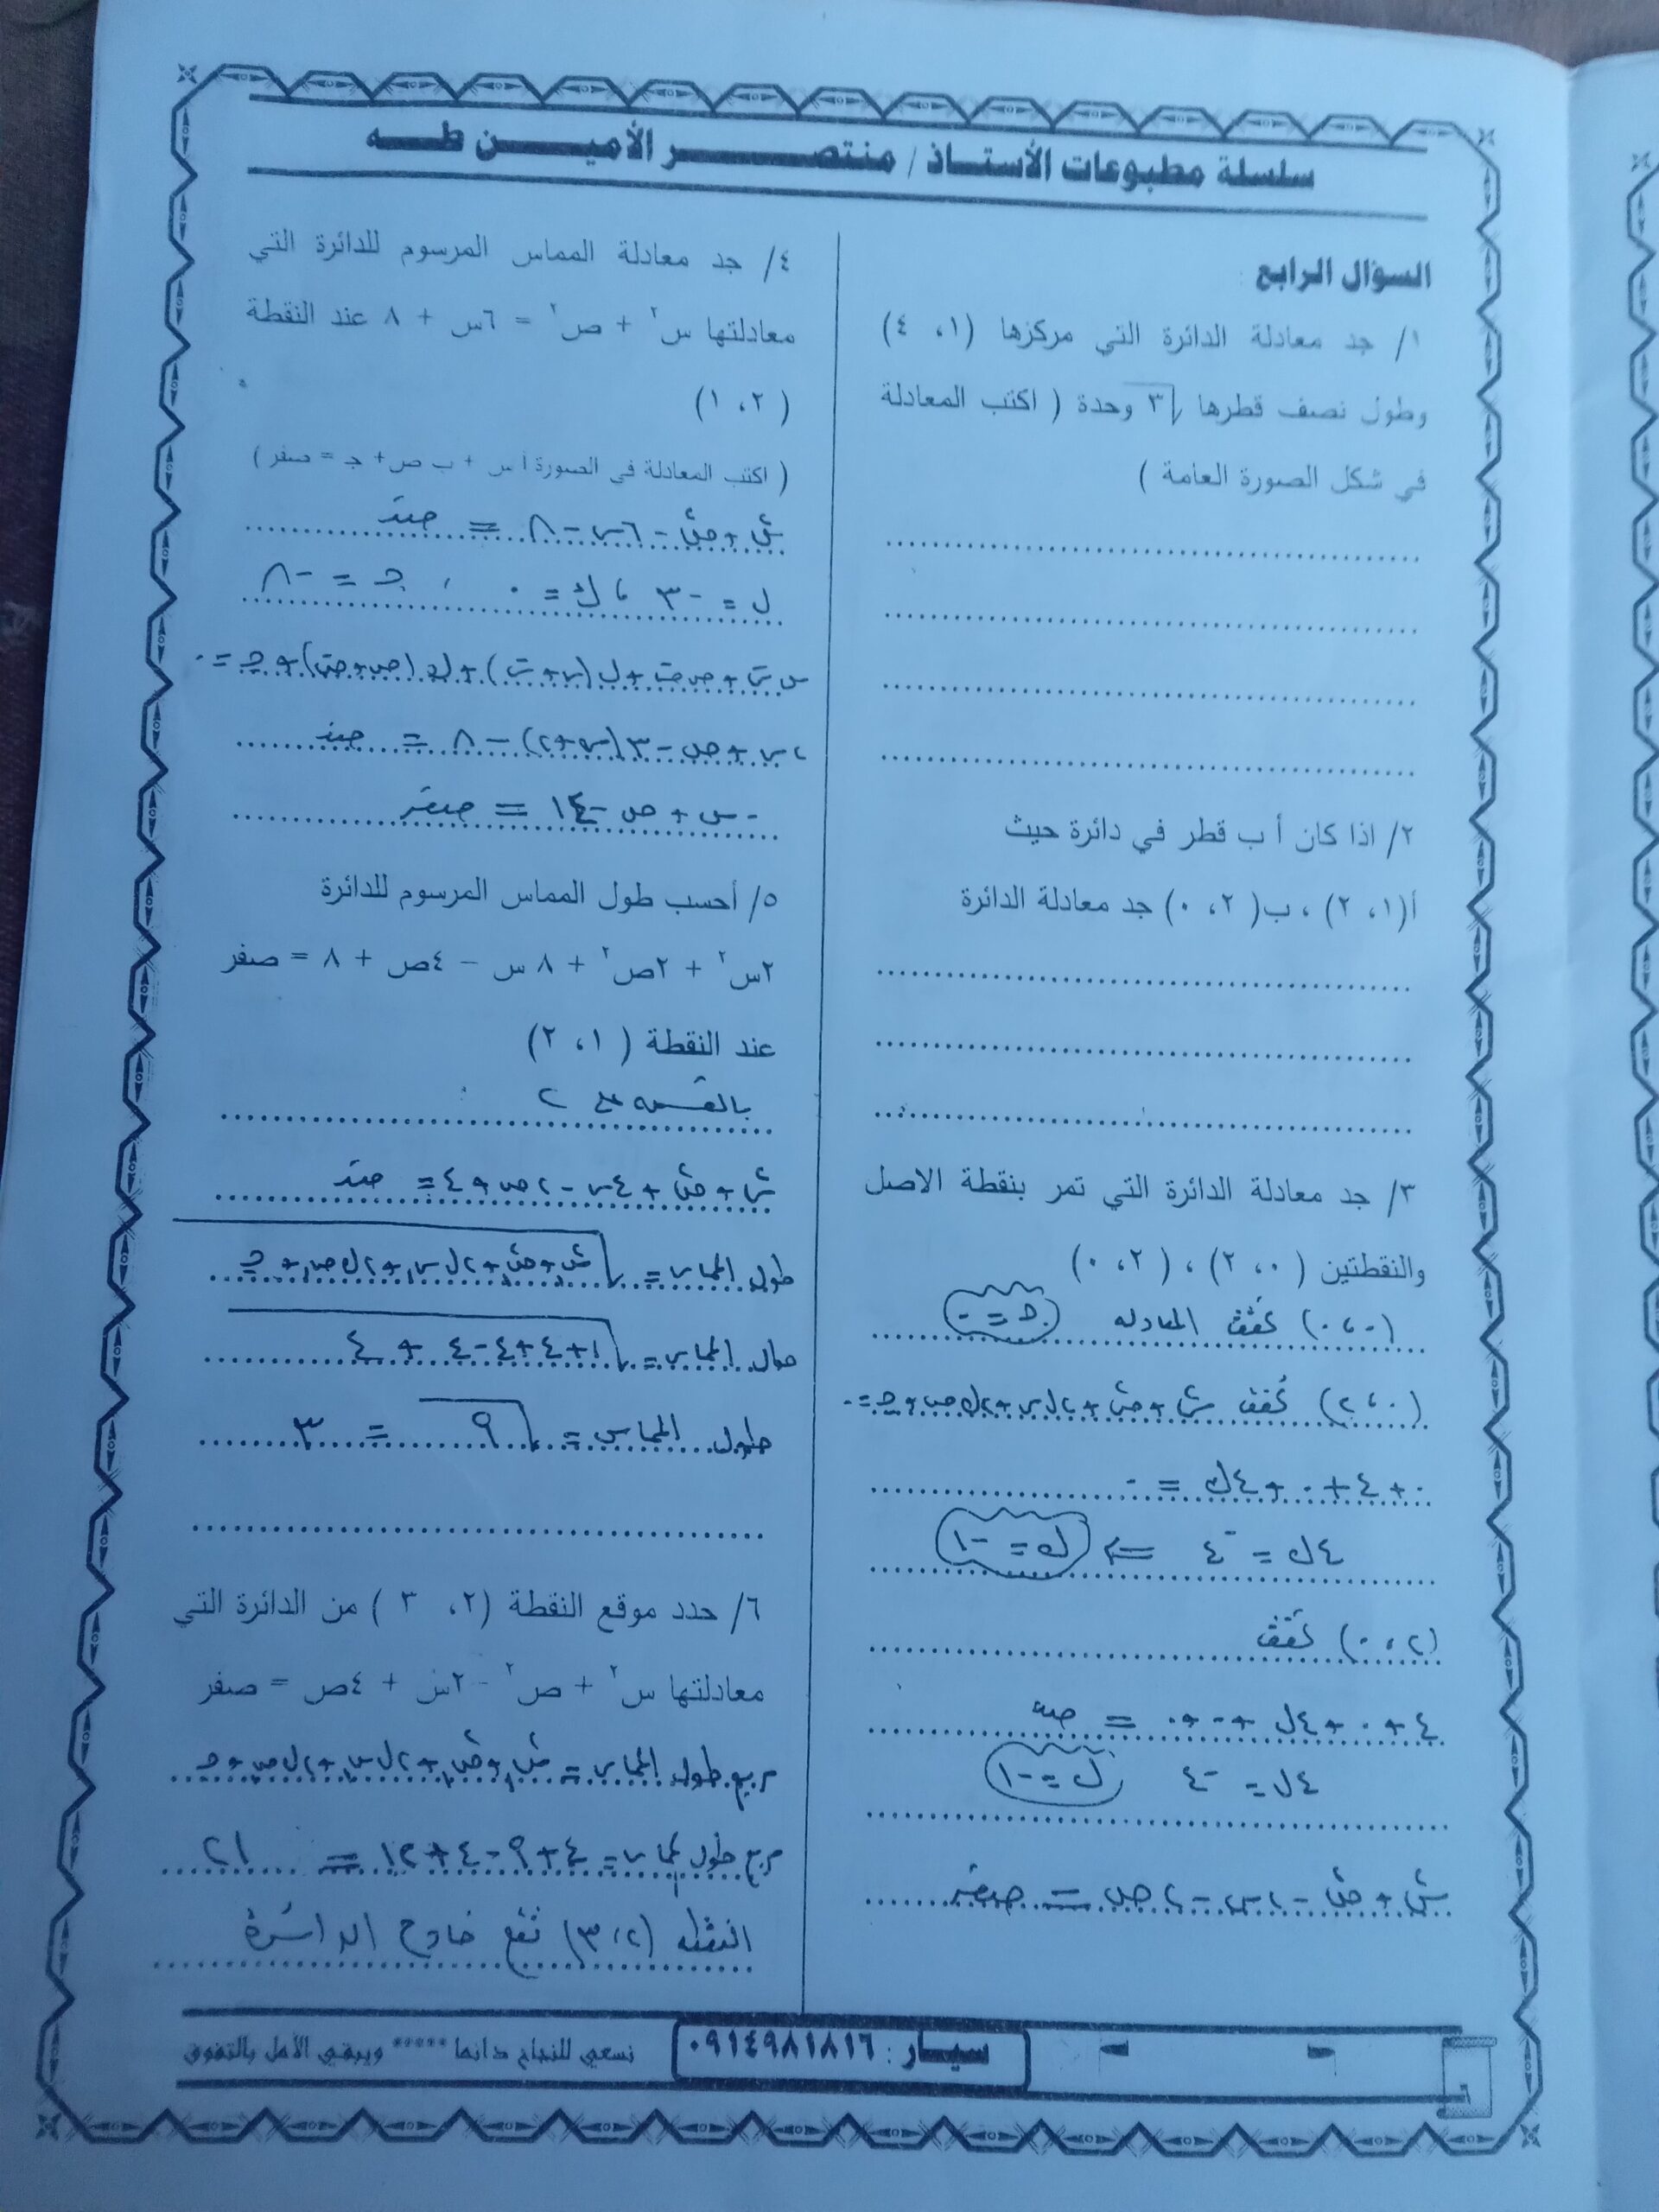 سلسلة مطبوعات الأستاذ / منتصر الأمين طه
السؤال الرابع :
١/ جد معادلة الدائرة التي مركزها (١، ٤)
وطول نصف قطرها √٣ وحدة ( اكتب المعادلة
في شكل الصورة العامة )
٢/ اذا كان أ ب قطر في دائرة حيث
أ(١، ٢) ، ب( ٢، ٠) جد معادلة الدائرة
٣/ جد معادلة الدائرة التي تمر بنقطة الاصل
والنقطتين ( ٠، ٢) ، ( ٢، ٠)
(٠،٠) تحقق المعادله جـ = ٠
(٢،٠) تحقق س٢ + ص٢ + ٢ل س + ٢ك ص + جـ = ٠
٠ + ٤ + ٠ + ٤ك = ٠
٤ك = -٤ ⇐ ك = -١
(٢،٠) تحقق
٤ + ٠ + ٤ل + ٠ + ٠ = صفر
٤ل = -٤ ل = -١
س٢ + ص٢ - ٢س - ٢ص = صفر
٤/ جد معادلة المماس المرسوم للدائرة التي
معادلتها س٢ + ص٢ = ٦س + ٨ عند النقطة
( ٢، ١)
( اكتب المعادلة في الصورة أ س + ب ص+ جـ = صفر)
س٢ + ص٢ - ٦س - ٨ = صفر
ل = -٣ ، ك = ٠ ، جـ = -٨
س س١ + ص ص١ + ل (س + س١) + ك (ص + ص١) + جـ = ٠
٢س + ص - ٣(س + ٢) - ٨ = صفر
-س + ص - ١٤ = صفر
٥/ أحسب طول المماس المرسوم للدائرة
٢س٢ + ٢ص٢ + ٨ س - ٤ص + ٨ = صفر
عند النقطة ( ١، ٢)
بالقسمه على ٢
س٢ + ص٢ + ٤س - ٢ص + ٤ = صفر
طول المماس = √س١٢ + ص١٢ + ٢ل س١ + ٢ك ص١ + جـ
طول المماس = √١ + ٤ + ٤ - ٤ + ٤
طول المماس = √٩ = ٣
٦/ حدد موقع النقطة (٢، ٣ ) من الدائرة التي
معادلتها س٢ + ص٢ - ٢س + ٤ص = صفر
مربع طول المماس = س١٢ + ص١٢ + ٢ل س١ + ٢ك ص١ + جـ
مربع طول المماس = ٤ + ٩ - ٤ + ١٢ = ٢١
النقطه (٢،٣) تقع خارج الدائرة
٦
سيار : ٠٩١٤٩٨١٨١٦
نسعي للنجاح دائما ***** ويبقي الأمل بالتفوق